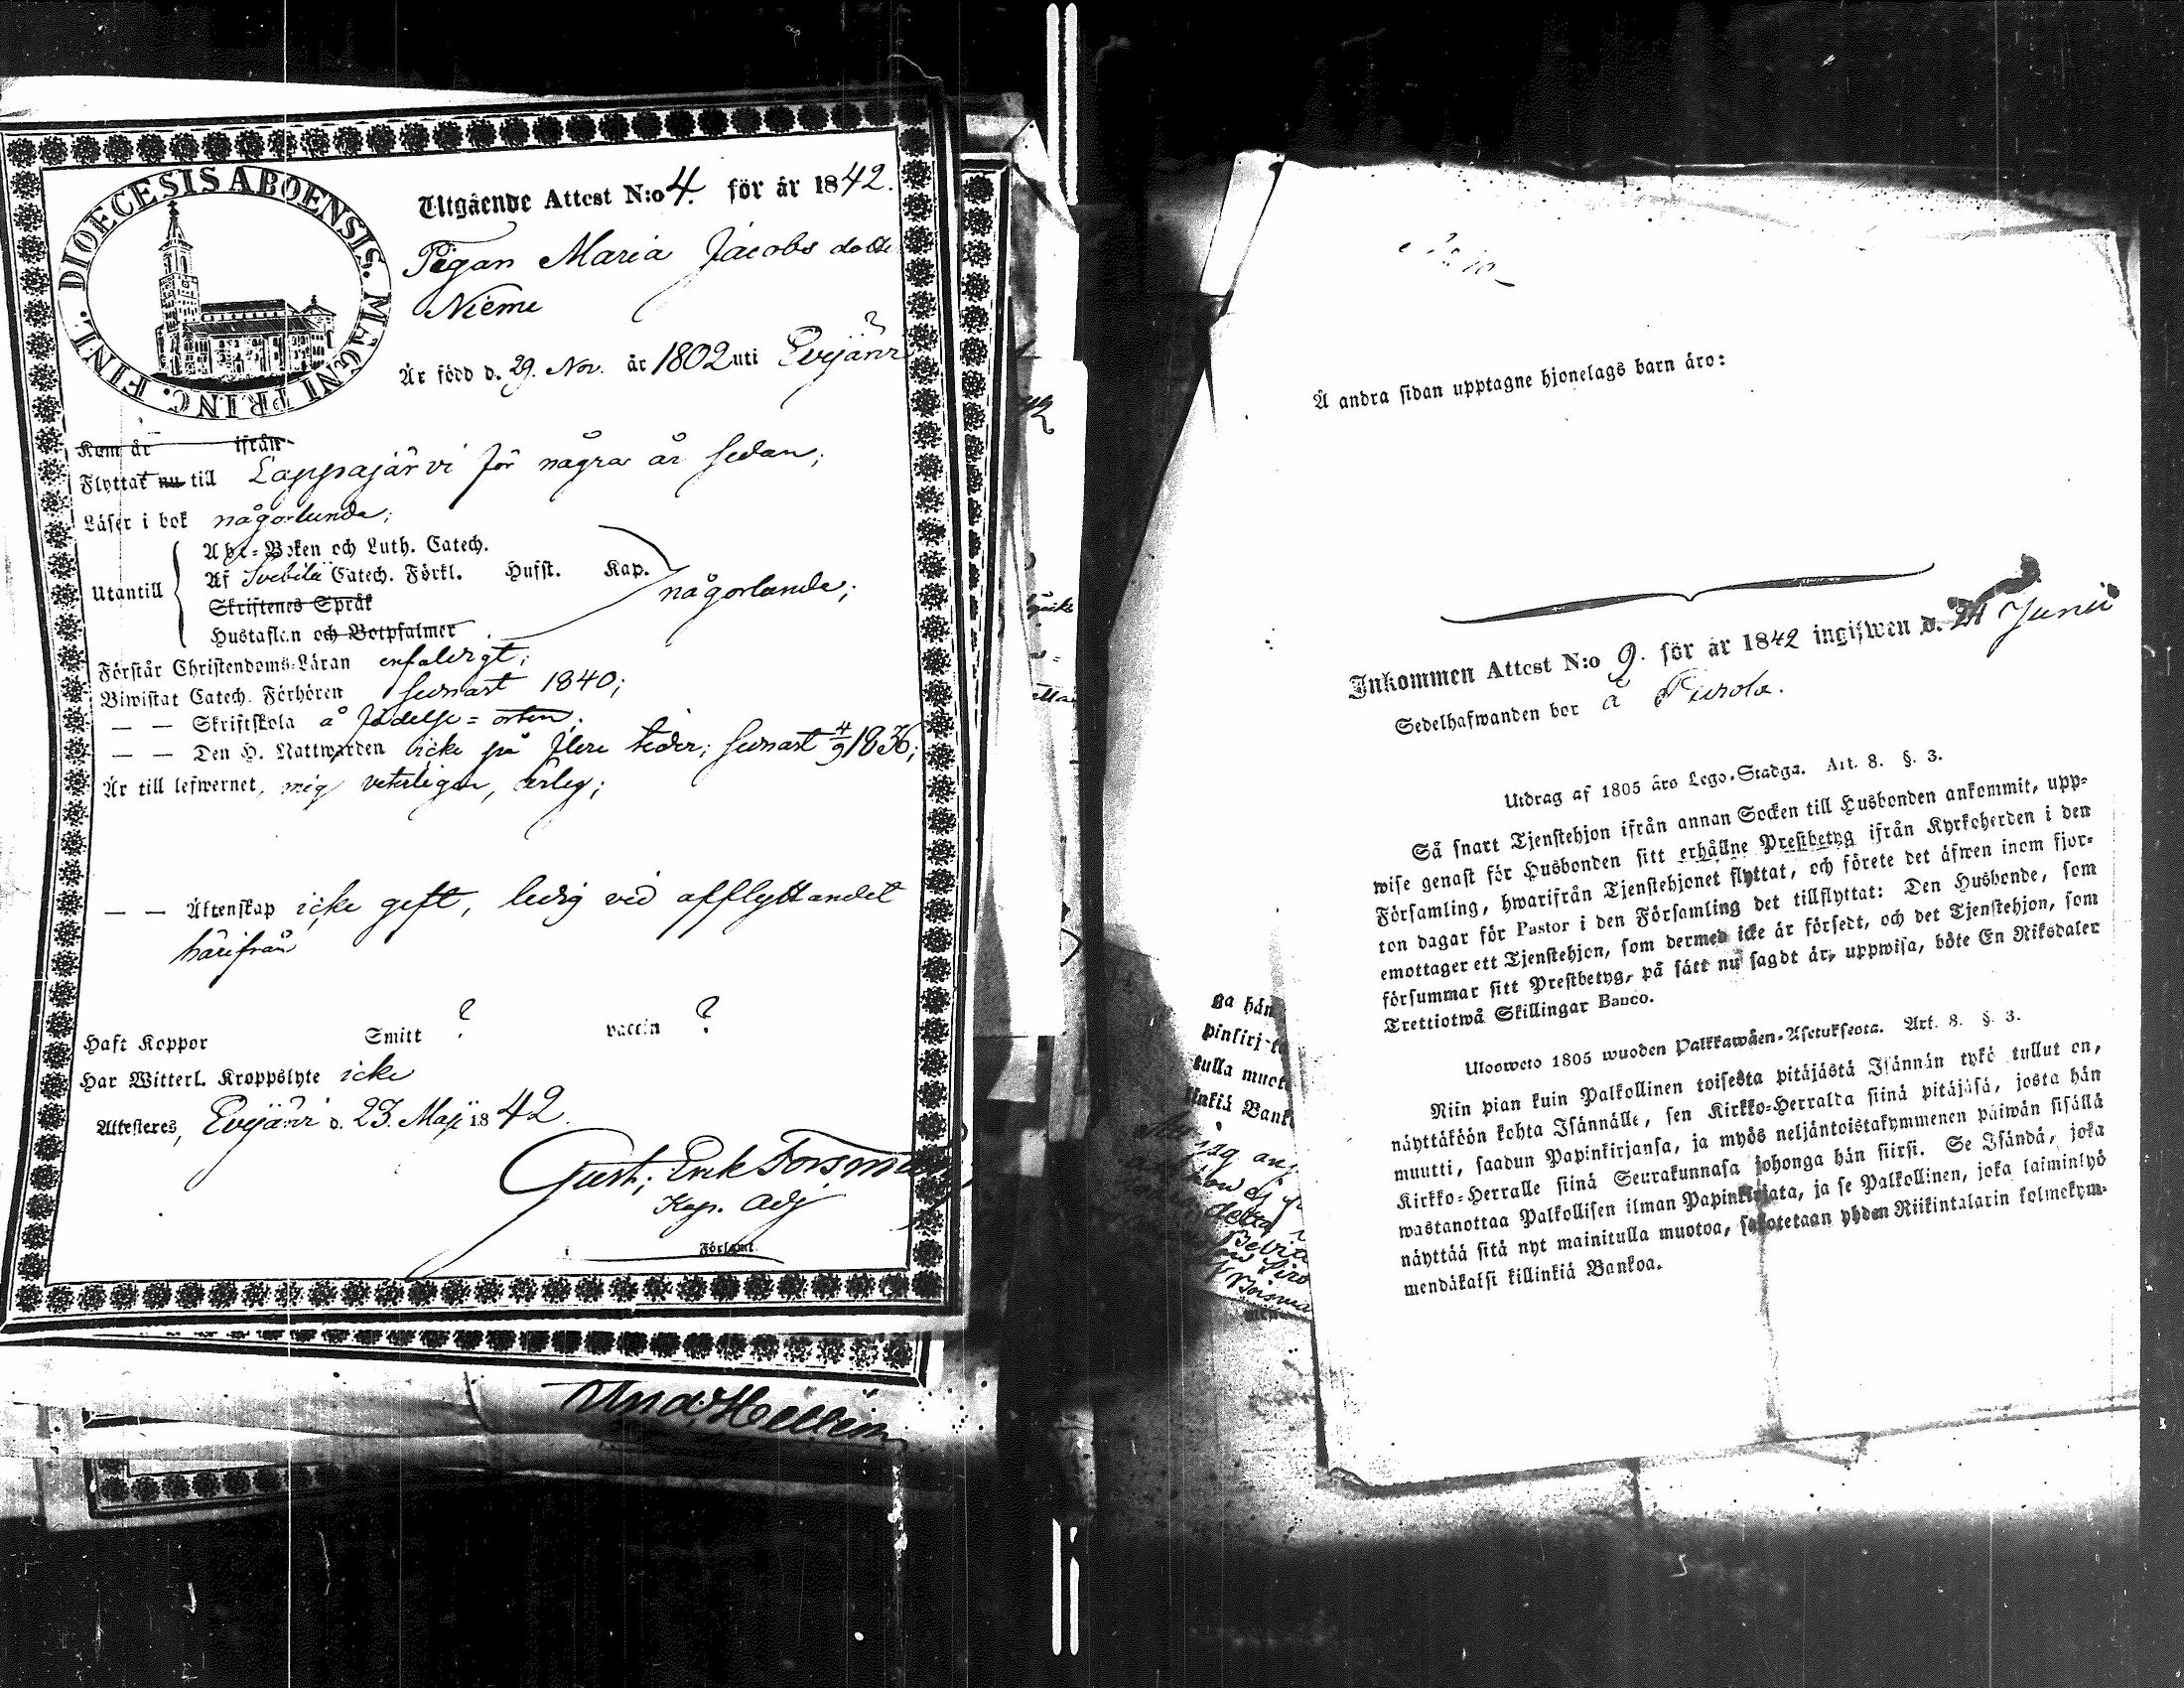 DIOECESIS ABOENSIS. MAGNI PRINC. FINL.
Utgående Attest N:o 4. för år 1842.
Pigan Maria Jacobs dotter
Niemi
Är född d. 29. Nov. år 1802 uti Evijärvi ?
Kom år ifrån
Flyttat nu till Lappajärvi för några år sedan;
Läser i bok någorlunda;
Utantill
Abc-Boken och Luth. Catech.
Af Svebilii Catech. Förkl. Hufst. Kap.
Skriftenes Språk
Hustaflan och Botpsalmer
någorlunda;
Förstår Christendoms-Läran enfaldigt;
Biwistat Catech. Förhören senast 1840;
— — Skriftskola å födelse-orten;
— — Den H. Nattwarden icke på flere tider; senast 4/9 1836;
Är till lefwernet, mig veterligen, ärlig;
— — Äktenskap icke gift, ledig vid afflyttandet
härifrån
Haft Koppor Smitt ? vaccin ?
Har Witterl. Kroppslyte icke
Attesteres, Evijärvi d. 23. Maji 1842.
Gust. Erik Forsman
Kap. Adj
i Församl.
Å andra sidan upptagne hjonelags barn äro:
Inkommen Attest N:o 9. för år 1842 ingifwen d. 24 Junii
Sedelhafwanden bor å Purola.
Utdrag af 1805 års Lego-Stadga. Art. 8. §. 3.
Så snart Tjenstehjon ifrån annan Socken till Husbonden ankommit, upp-
wise genast för Husbonden sitt erhållne Prestbetyg ifrån Kyrkoherden i den
Församling, hwarifrån Tjenstehjonet flyttat, och förete det äfwen inom fjor-
ton dagar för Pastor i den Församling det tillflyttat: Den Husbonde, som
emottager ett Tjenstehjon, som dermed icke är försedt, och det Tjenstehjon, som
försummar sitt Prestbetyg, på sätt nu sagdt är, uppwisa, böte En Riksdaler
Trettiotwå Skillingar Banco.
Uloswето 1805 wuoden Palkkawäen-Asetuksesta. Art. 8. §. 3.
Niin pian kuin Palkollinen toisesta pitäjästä Isännän tykö tullut on,
näyttäköön kohta Isännälle, sen Kirkko-Herralta siinä pitäjäsä, josta hän
muutti, saadun Papinkirjansa, ja myös neljäntoistakymmenen päiwän sisällä
Kirkko-Herralle siinä Seurakunnasa johonga hän siirsi. Se Isändä, joka
wastanottaa Palkollisen ilman Papinkirjata, ja se Palkollinen, joka laiminlyö
näyttää sitä nyt mainitulla muotoa, sakotetaan yhden Riikintalarin kolmekym-
mendäkaksi killinkiä Bankoa.